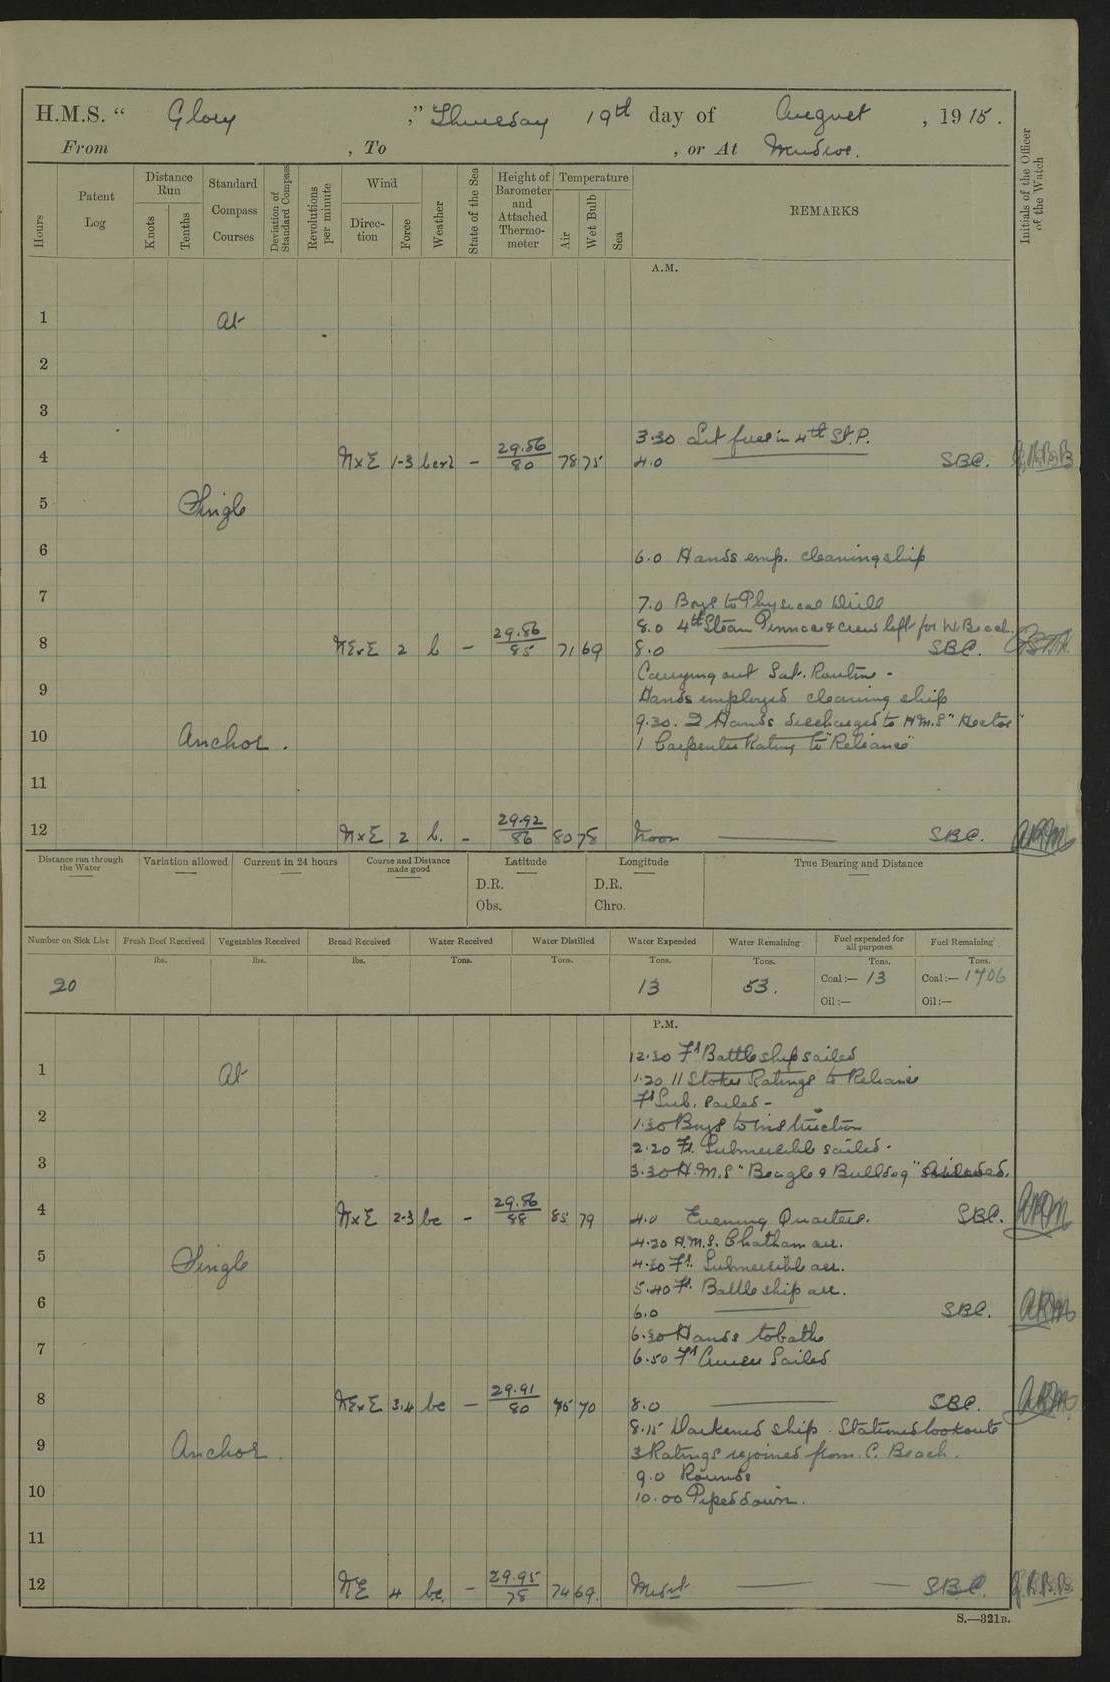 H.M.S. “ Glory ,” Thursday 19th day of August , 1915.
From , To , or At Mudros.
Hours
Patent Log
Distance Run
Knots
Tenths
Standard Compass Courses
Deviation of Standard Compass
Revolutions per minute
Wind
Direction
Force
Weather
State of the Sea
Height of Barometer and Attached Thermometer
Temperature
Air
Wet Bulb
Sea
REMARKS
Initials of the Officer of the Watch
A.M.
1 At
2
3
3.30 Lit fires in 4th St. P.
4 N x E 1-3 – 29.86 / 80 78 75 4.0 SBC.
5 Single
6 6.0 Hands emp. cleaning ship
7 7.0 Boys to Physical Drill
8.0 4th Steam Pinnace & crew left for W. Beach.
8 NE x E 2 b – 29.86 / 85 71 69 8.0 SBC.
Carrying out Sat. Routine -
9 Hands employed cleaning ship
9.30. 2 Hands discharged to H.M.S "Hector"
10 Anchor. 1 Carpenter Rating to "Reliance"
11
12 N x E 2 b. – 29.92 / 86 80 78 Noon SBC. ARM
Distance run through the Water
Variation allowed
Current in 24 hours
Course and Distance made good
Latitude
D.R.
Obs.
Longitude
D.R.
Chro.
True Bearing and Distance
Number on Sick List
Fresh Beef Received
Vegetables Received
Bread Received
Water Received
Water Distilled
Water Expended
Water Remaining
Fuel expended for all purposes
Fuel Remaining
lbs. lbs. lbs. Tons. Tons. Tons. Tons. Tons. Tons.
20 13 53. Coal:— 13 Coal:— 1706
Oil:— Oil:—
P.M.
12.30 Fr Battleship sailed
1 At 1.20 11 Stoker Ratings to Reliance
Fr Sub. sailed -
2 1.30 Boys to instruction
2.20 Fr. Submersible sailed.
3 3.30 H.M.S "Beagle & Bulldog"
4 N x E 2-3 bc – 29.86 / 88 85 79 4.0 Evening Quarters. SBC. ARM
4.20 H.M.S. Chatham arr.
5 Single 4.30 Fr. Submersible arr.
5.40 Fr. Battleship arr.
6 6.0 SBC. ARM
6.30 Hands to bathe
7 6.50 Fr Sailed
8 NE x E 3.4 bc – 29.91 / 80 75 70 8.0 SBC. ARM
8.15 Darkened ship. Stationed lookouts
9 Anchor. 3 Ratings rejoined from C. Beach.
9.0 Rounds
10 10.00 Piped down.
11
12 NE 4 bc. – 29.95 / 78 74 69. Midt SBC. J.B.B.B.
S.—321B.